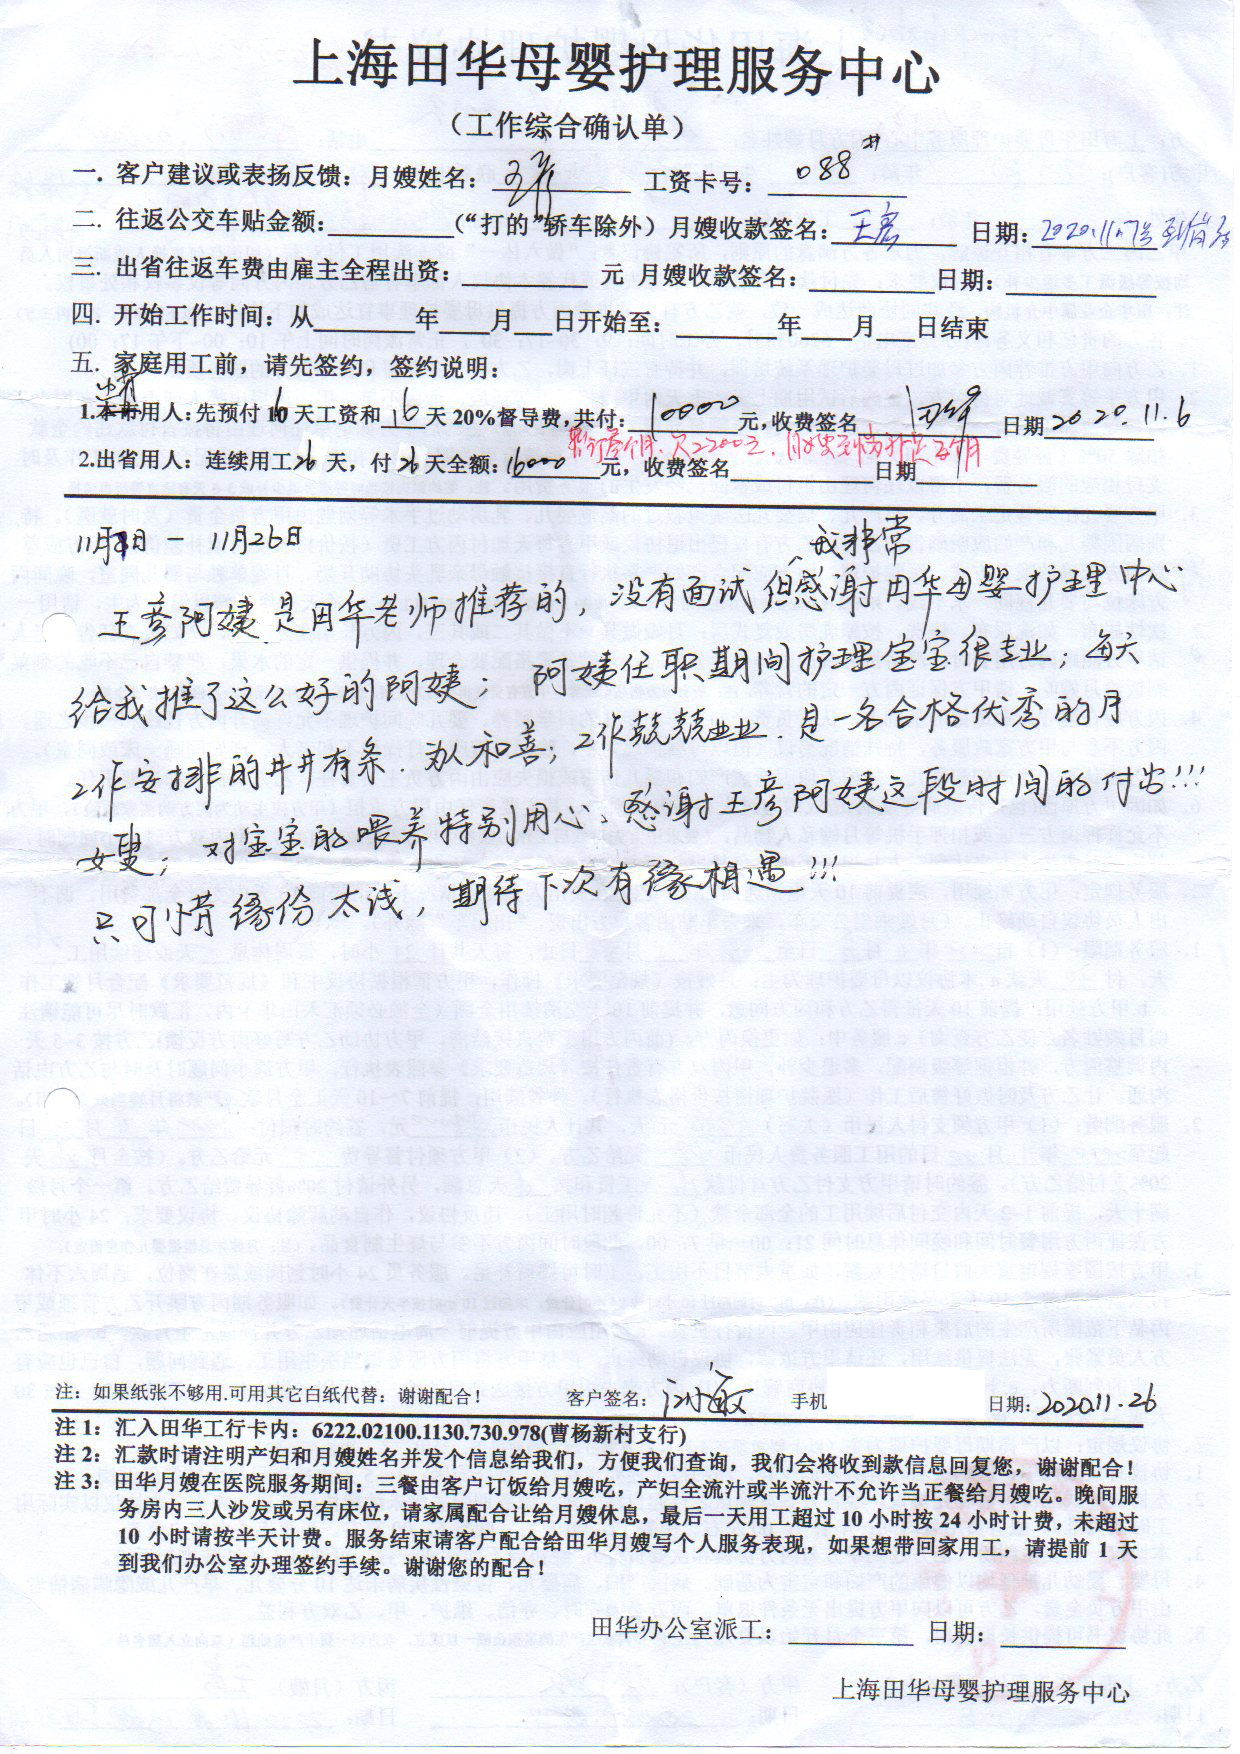 上海田华母婴护理服务中心
（工作综合确认单）
一. 客户建议或表扬反馈：月嫂姓名：王彦 工资卡号：088#
二. 往返公交车贴金额：（“打的”轿车除外）月嫂收款签名：王彦 日期：2020.11.7号到
三. 出省往返车费由雇主全程出资： 元 月嫂收款签名： 日期：
四. 开始工作时间：从 年 月 日开始至： 年 月 日结束
五. 家庭用工前，请先签约，签约说明：
1.本市用人：先预付10天工资和16天20%督导费，共付：10000元，收费签名 日期2020.11.6
2.出省用人：连续用工26天，付26天全额：16000元，收费签名 日期
11月日－11月26日
我非常
王彦阿姨是田华老师推荐的，没有面试但感谢田华母婴护理中心
给我推了这么好的阿姨；阿姨任职期间护理宝宝很专业；每天
工作安排的井井有条 为人和善；工作兢兢业业．是一名合格优秀的月
嫂；对宝宝的喂养特别用心、感谢王彦阿姨这段时间的付出!!!
只可惜缘份太浅，期待下次有缘相遇!!!
注：如果纸张不够用.可用其它白纸代替：谢谢配合！ 客户签名： 手机 日期：2020.11.26
注 1：汇入田华工行卡内：6222.02100.1130.730.978(曹杨新村支行)
注 2：汇款时请注明产妇和月嫂姓名并发个信息给我们，方便我们查询，我们会将收到款信息回复您，谢谢配合！
注 3：田华月嫂在医院服务期间：三餐由客户订饭给月嫂吃，产妇全流汁或半流汁不允许当正餐给月嫂吃。晚间服
务房内三人沙发或另有床位，请家属配合让给月嫂休息，最后一天用工超过 10 小时按 24 小时计费，未超过
10 小时请按半天计费。服务结束请客户配合给田华月嫂写个人服务表现，如果想带回家用工，请提前 1 天
到我们办公室办理签约手续。谢谢您的配合！
田华办公室派工： 日期：
上海田华母婴护理服务中心